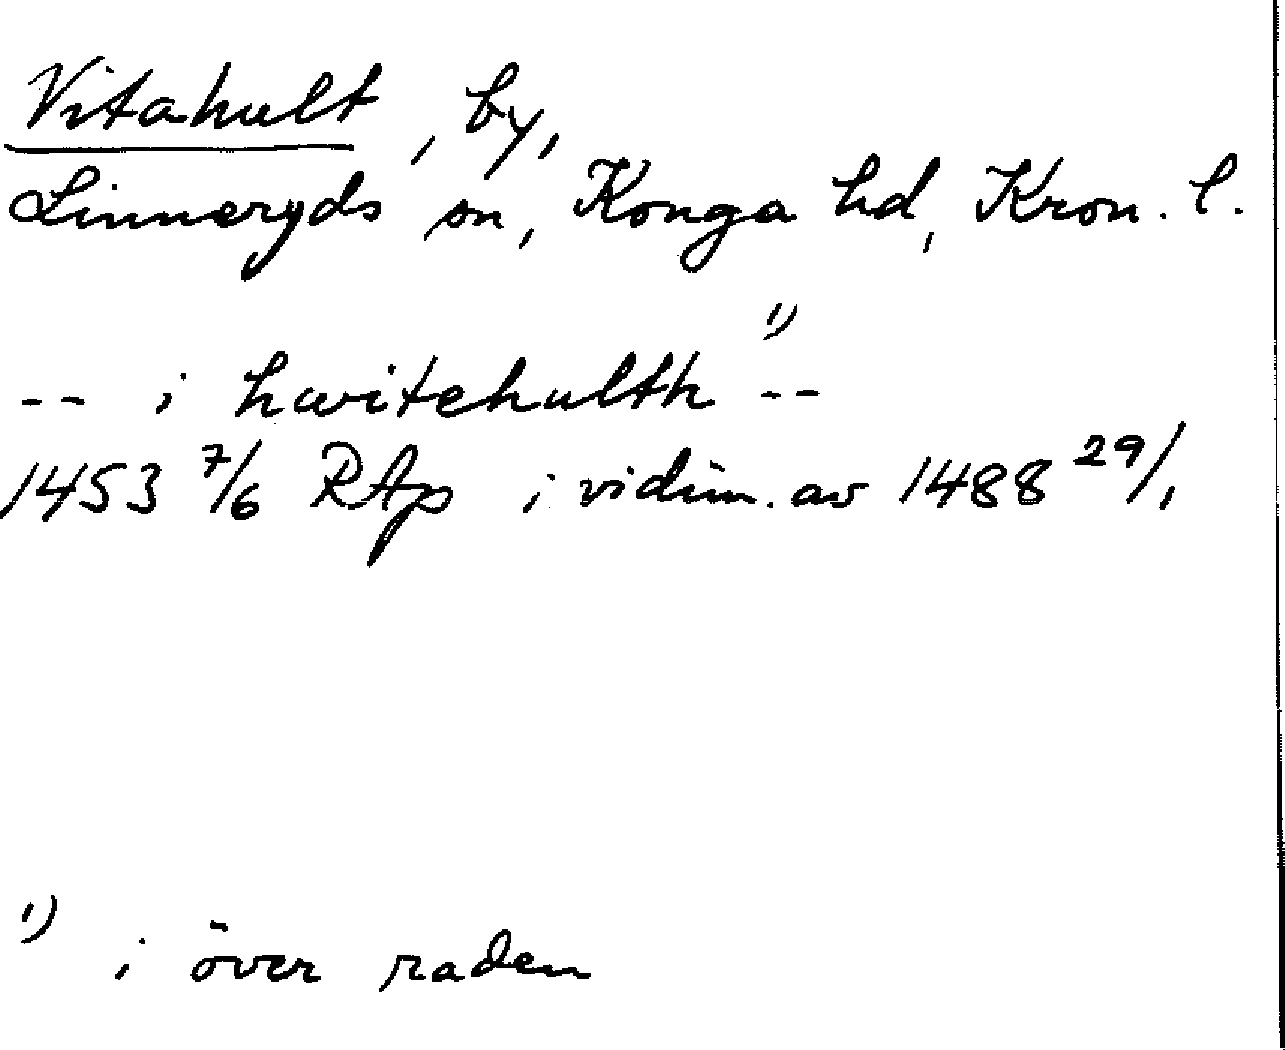 Vitahult, by,
Linneryds sn, Konga hd, Kron. l.
-- i hwitehulth ¹⁾ --
1453 7/6 RAp i vidim. av 1488 29/1
¹⁾ i över raden